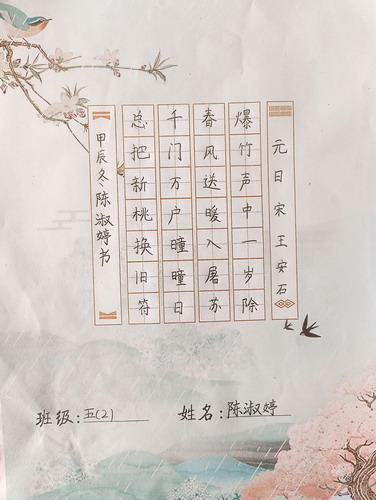 元日 宋 王安石
爆竹声中一岁除
春风送暖入屠苏
千门万户曈曈日
总把新桃换旧符
甲辰冬陈淑婷书
班级:五(2)
姓名:陈淑婷